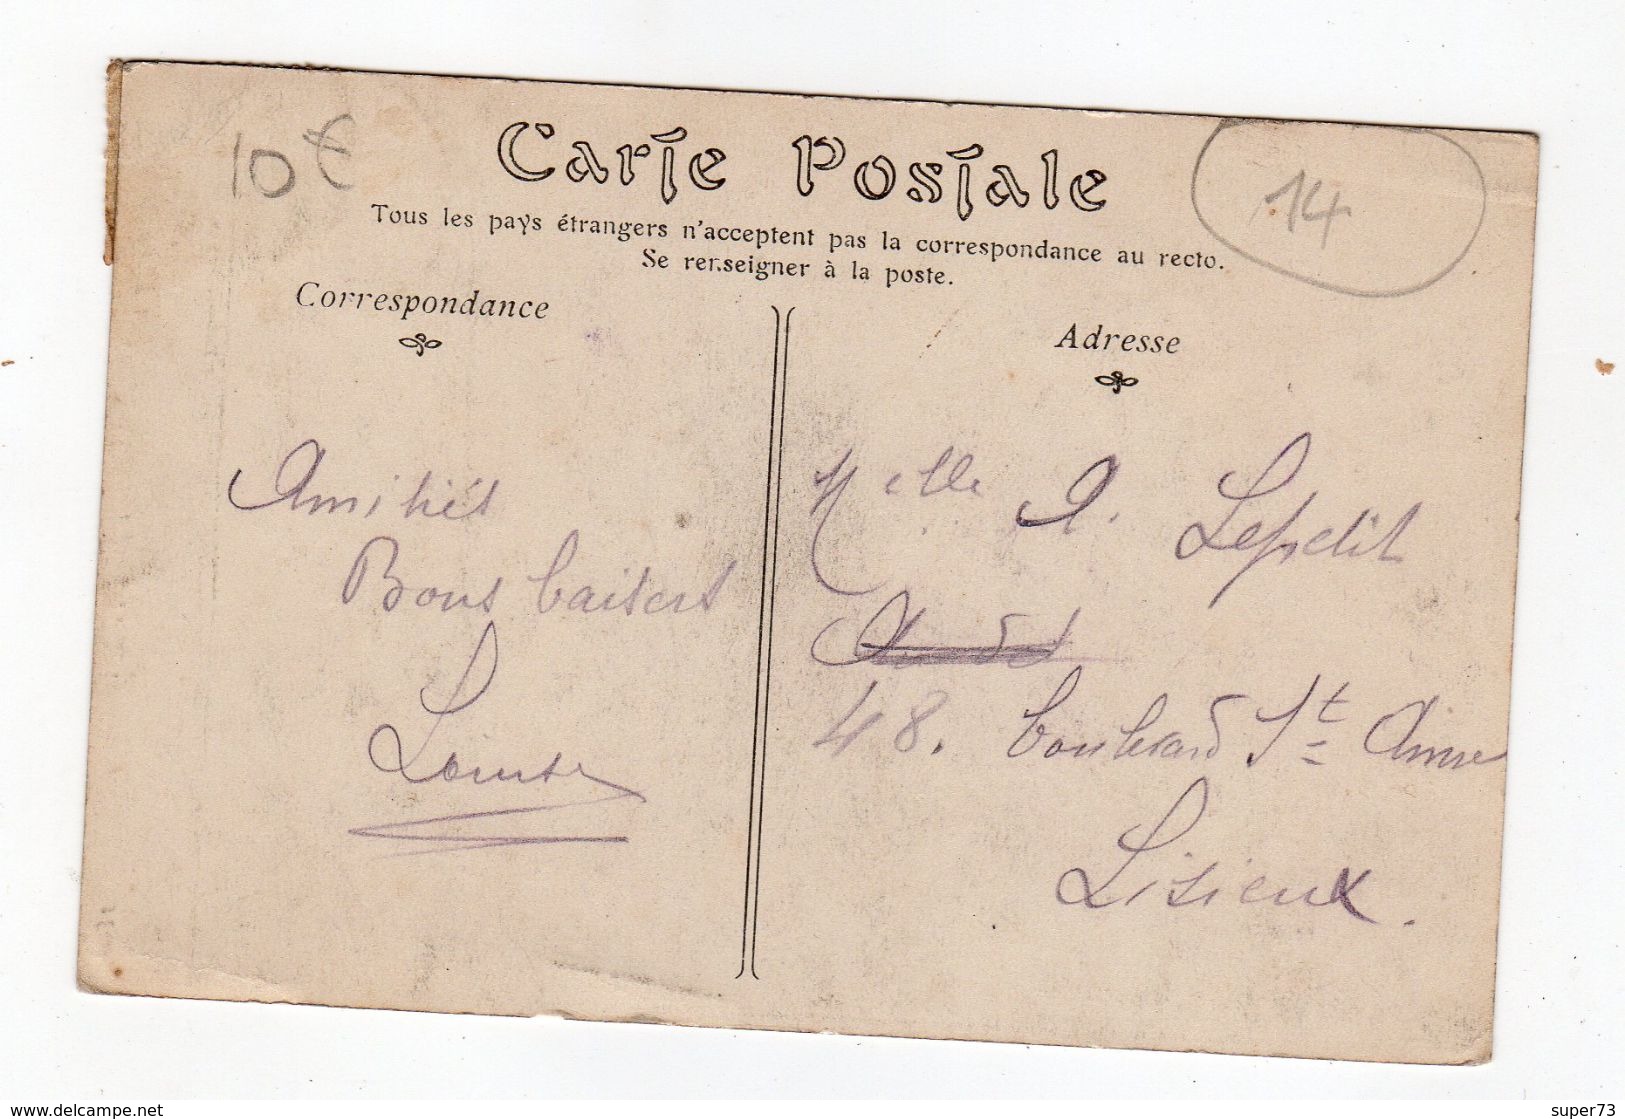 10€
14
Carte Postale
Tous les pays étrangers n'acceptent pas la correspondance au recto.
Se renseigner à la poste.
Correspondance
Adresse
Amitiés
Bons baisers
Louise
Melle A. Lepetit
48. boulevard Ste Anne
Lisieux.
www.delcampe.net
super73